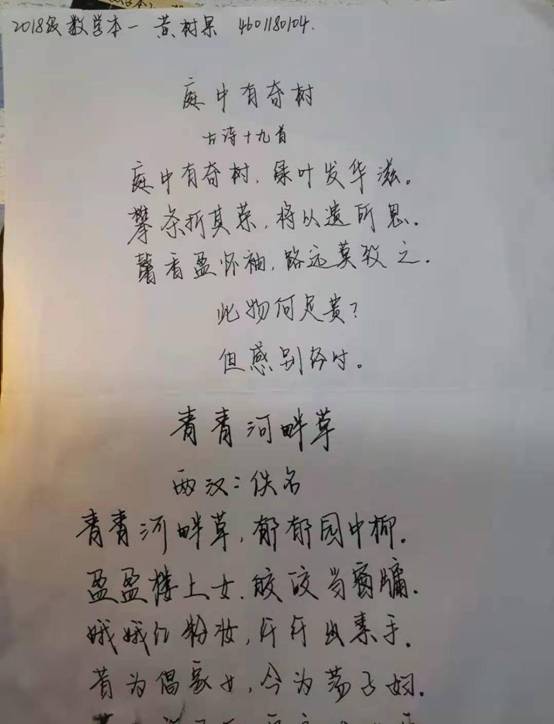 2018级数学本一 黄树果 4601180104.
庭中有奇树
古诗十九首
庭中有奇树,绿叶发华滋。
攀条折其荣,将以遗所思.
馨香盈怀袖,路远莫致之.
此物何足贵?
但感别经时。
青青河畔草
两汉:佚名
青青河畔草,郁郁园中柳.
盈盈楼上女,皎皎当窗牖.
娥娥红粉妆,纤纤出素手.
昔为倡家女,今为荡子妇.